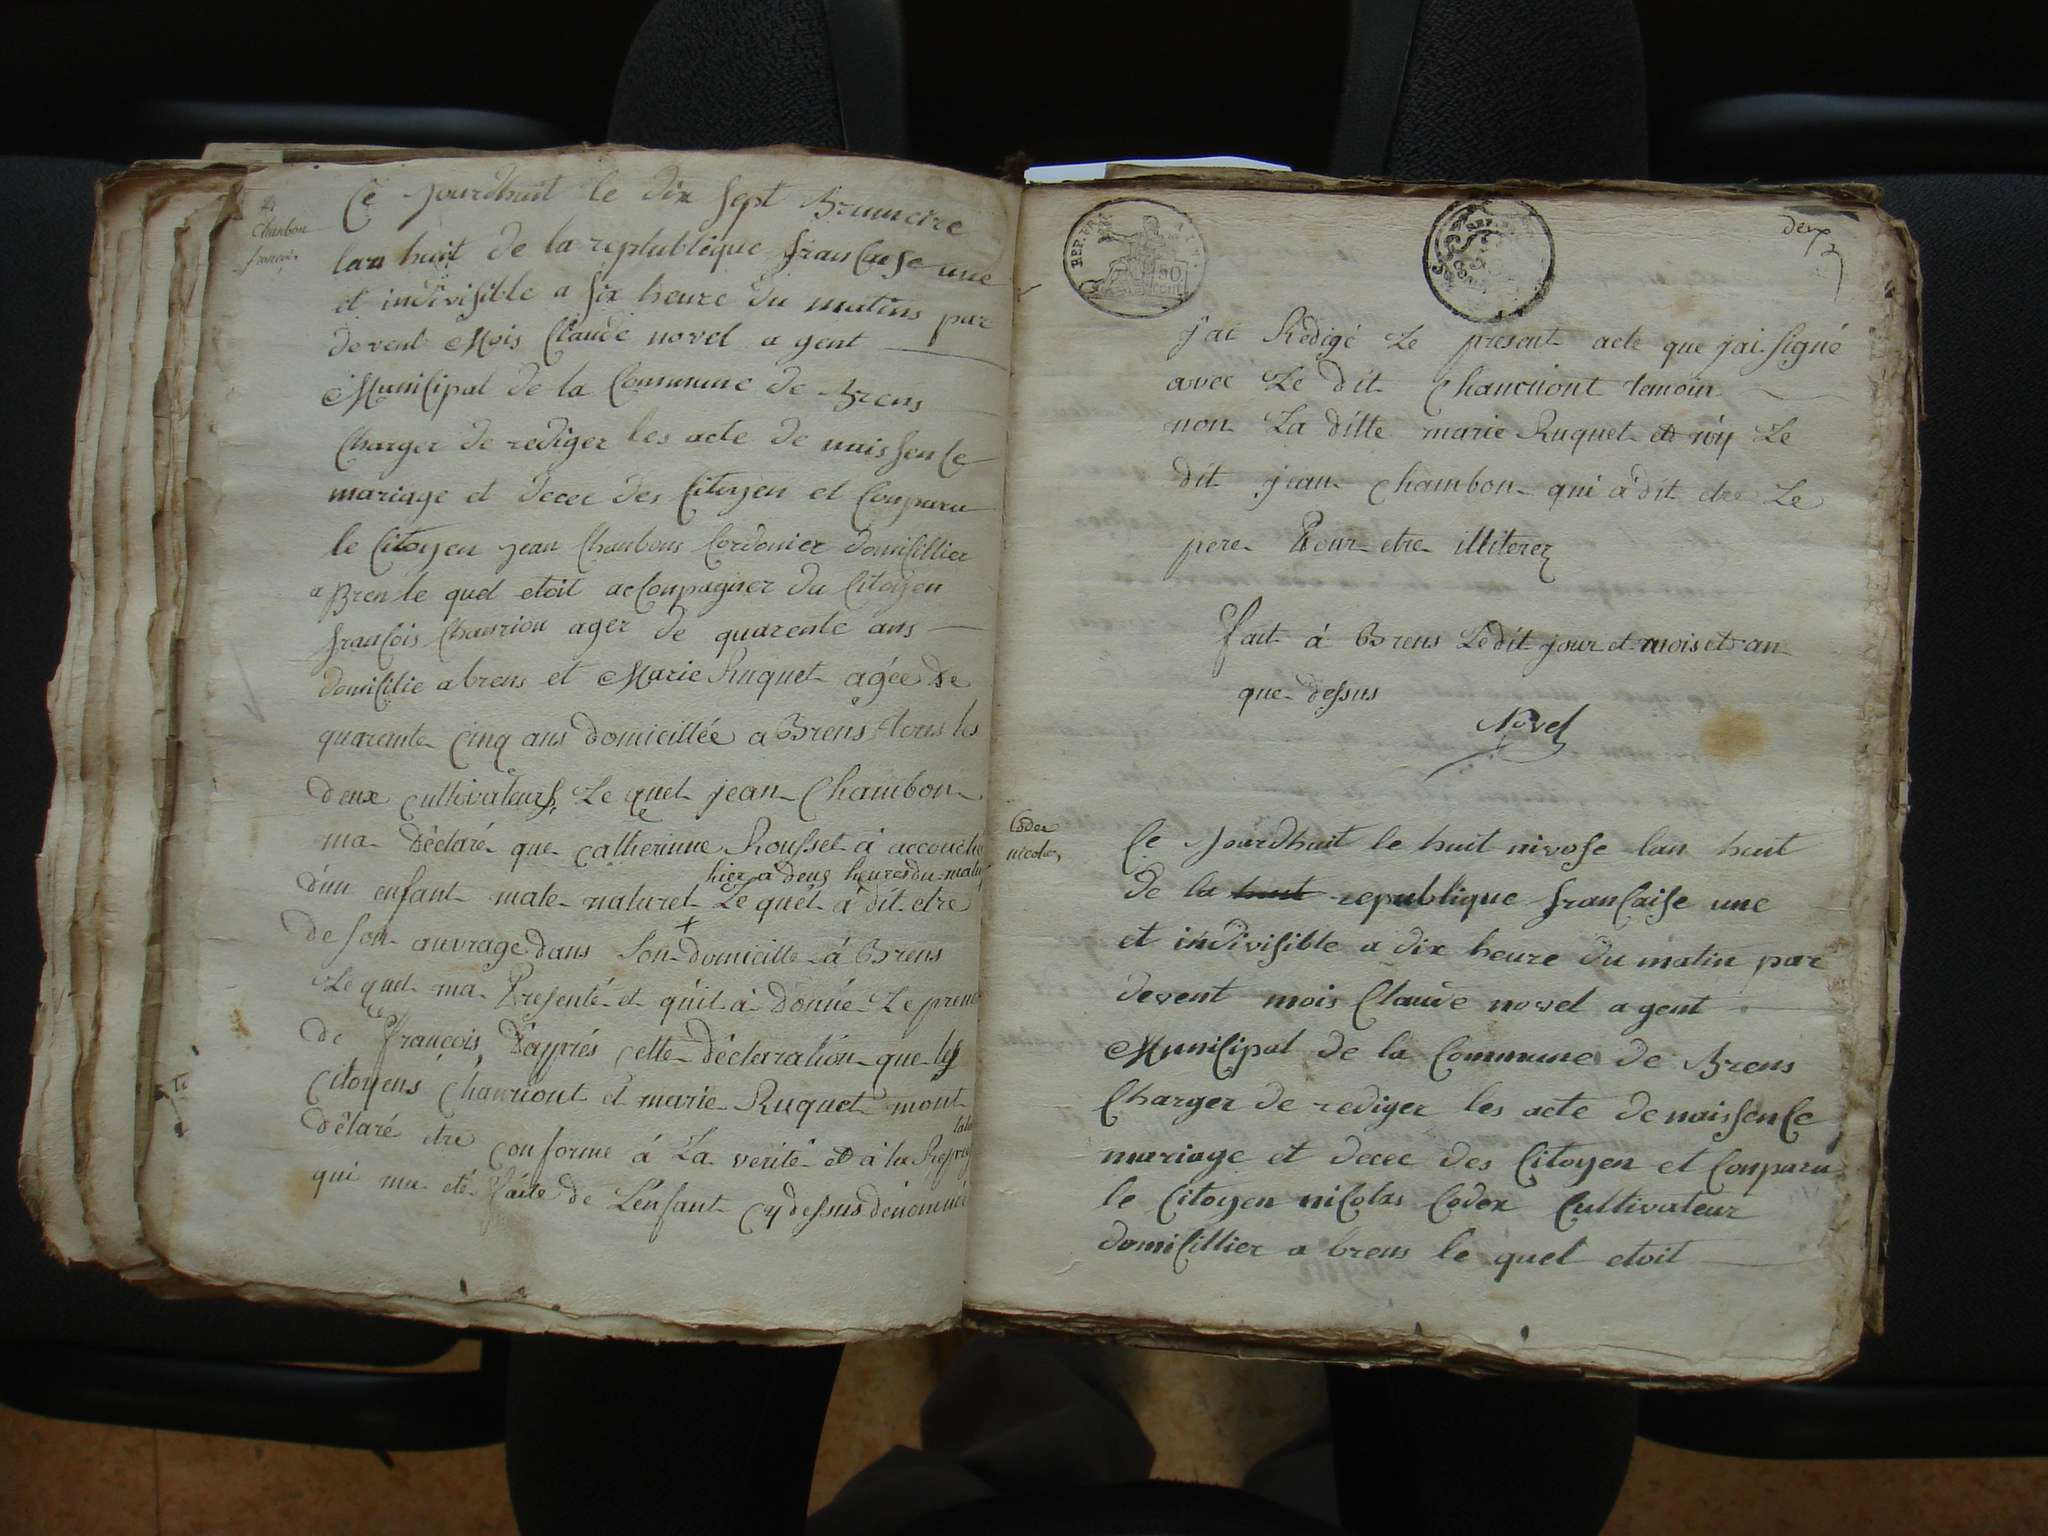 Chanbon
françois
Ce jourdhuit le dix sept Brumeire
lan huit de la replublique franCaise une
et indivisible a six heure du matins par
devent Mois Claude novel agent
MuniCipal de la Commune de Brens
Charger de rediger les acte de naissenCe
mariage et decec des Citoyen et Conparu
le Citoyen jean Chanbons Cordonier domiCillier
a Bren le quel etoit acConpagner du Citoyen
franCois Chanrion ager de quarente ans
domiCilie a brens et Marie Ruquet agée de
quarente cinq ans domicillée a Brens tous les
deux cultivateurs, Le quel jean Chambon
ma Déclaré que catherinne Rousset à accouché
hier a deux heures du matin
d'un enfant male naturel Le quel à dit etre
de son auvrage dans Son domicille à Brens
Le quel ma Presenté et qu'il à Donné Le preno
de François, D'apprés cette Déclaration que les
citoyens Chanriont et marie Ruquet mont
Délaré etre conforme á La verité et à la
qui ma eté faite de L'enfant cy dessus dénommée
REP. FRA.
50
deux
2
j'ai Redigé Le present acte que j'ai signé
avec Le dit Chanriont temoin
non La ditte marie Ruquet et n'y Le
dit jean Chambon qui à dit etre Le
pere Pour etre illiterez
fait à Brens Le dit jour et mois et an
que dessus
Novel
Coder
nicolas
Ce jourdhuit le huit nivose lan huit
de la huit republique franCaise une
et indivisible a dix heure du matin par
devent mois Claude novel agent
MuniCipal de la Commune de Brens
Charger de rediger les acte de naissenCe
mariage et decec des Citoyen et Conparu
le Citoyen niColas Coder Cultivateur
domiCillier a brens le quel etoit